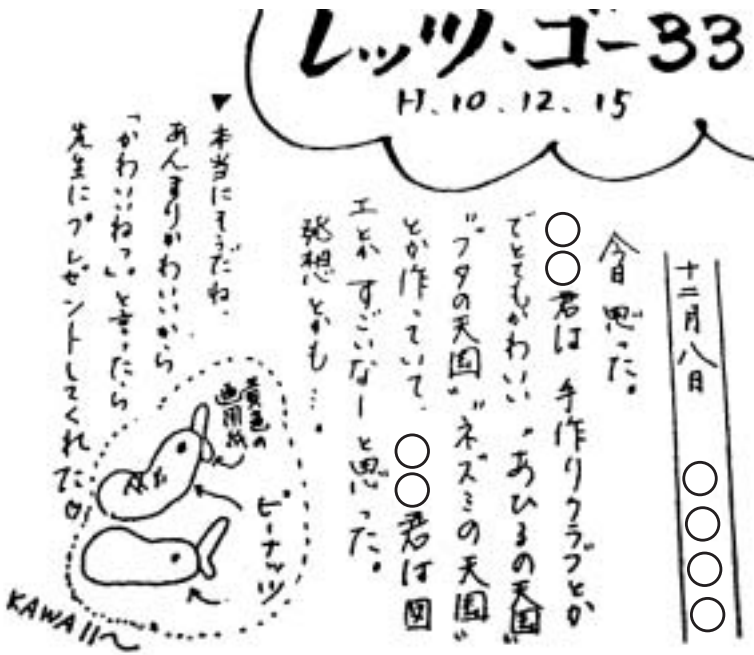 レッツ・ゴー33
H.10.12.15
十二月八日 ○○○○
今日思った。
○○君は 手作りクラブとか
でとてもかわいい“あひるの天国”
“ブタの天国”“ネズミの天国”
とか作っていて、○○君は図
工とかすごいなーと思った。
発想とかも…。
▼本当にそうだね。
あんまりかわいいから
「かわいいねっ」。と言ったら
先生にプレゼントしてくれた♡!
黄色の
画用紙
ピーナッツ
KAWAII〜